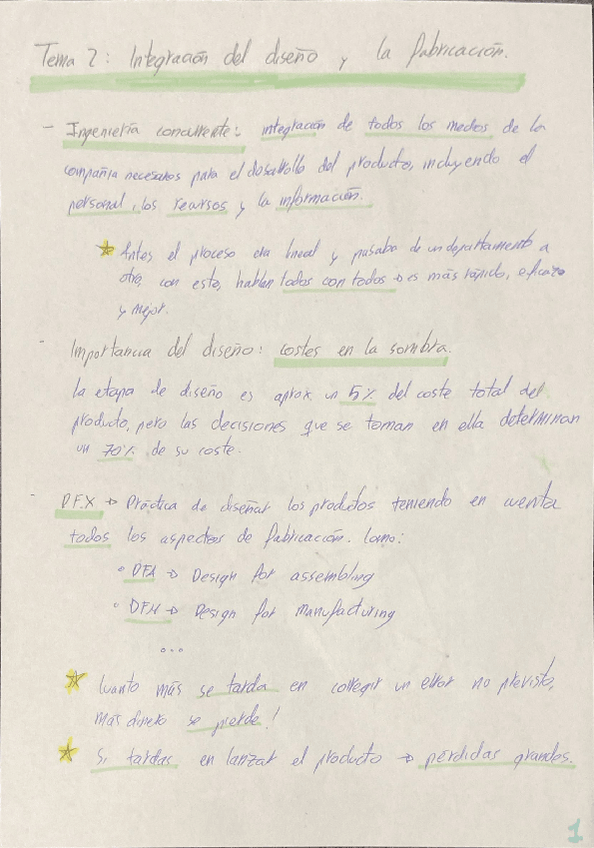 Tema 2: Integración del diseño y la fabricación.
- Ingeniería concurrente: integración de todos los medios de la
compañía necesarios para el desarrollo del producto, incluyendo el
personal, los recursos y la información.
☆ Antes el proceso era lineal y pasaba de un departamento a
otro, con esto, hablan todos con todos → es más rápido, eficaz
y mejor.
- Importancia del diseño: costes en la sombra.
la etapa de diseño es aprox un 5% del coste total del
producto, pero las decisiones que se toman en ella determinan
un 70% de su coste.
- DFX → Práctica de diseñar los productos teniendo en cuenta
todos los aspectos de fabricación. Como:
° DFA → Design for assembling
° DFM → Design for manufacturing
...
☆ Cuanto más se tarda en corregir un error no previsto,
más dinero se pierde!
☆ Si tardas en lanzar el producto → pérdidas grandes.
1